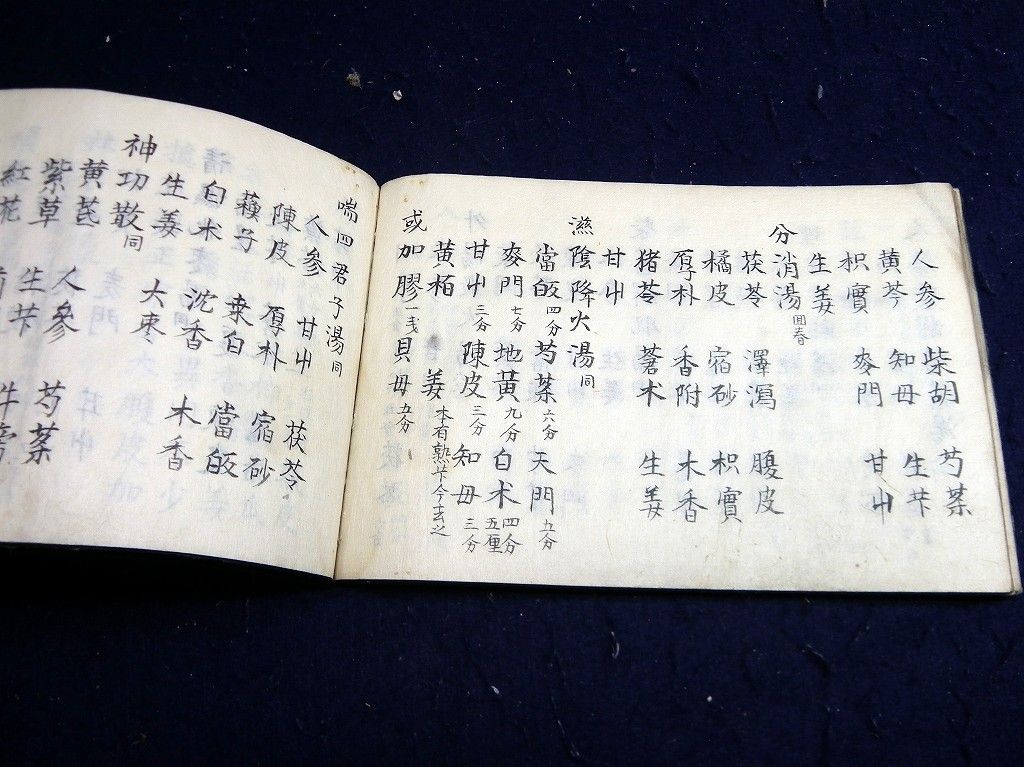 人參 柴胡 芍薬
黄芩 知母 生芐
枳實 麥門 甘屮
生姜
分消湯 囬春
茯苓 澤瀉 腹皮
橘皮 宿砂 枳實
厚朴 香附 木香
猪苓 蒼术 生姜
甘屮
滋陰降火湯 同
當皈四分 芍薬六分 天門五分
麥門七分 地黄九分 白术四分五厘
甘屮三分 陳皮三分 知母三分
黄栢 姜 本有熟芐今去之
或加膠一戋 貝母五分
喘四君子湯 同
人參 甘屮 茯苓
陳皮 厚朴 宿砂
蘓子 桒白 當皈
白朮 沈香 木香
生姜 大枣
神功散 同
黄芪 人參 芍薬
紫草 生芐
紅花